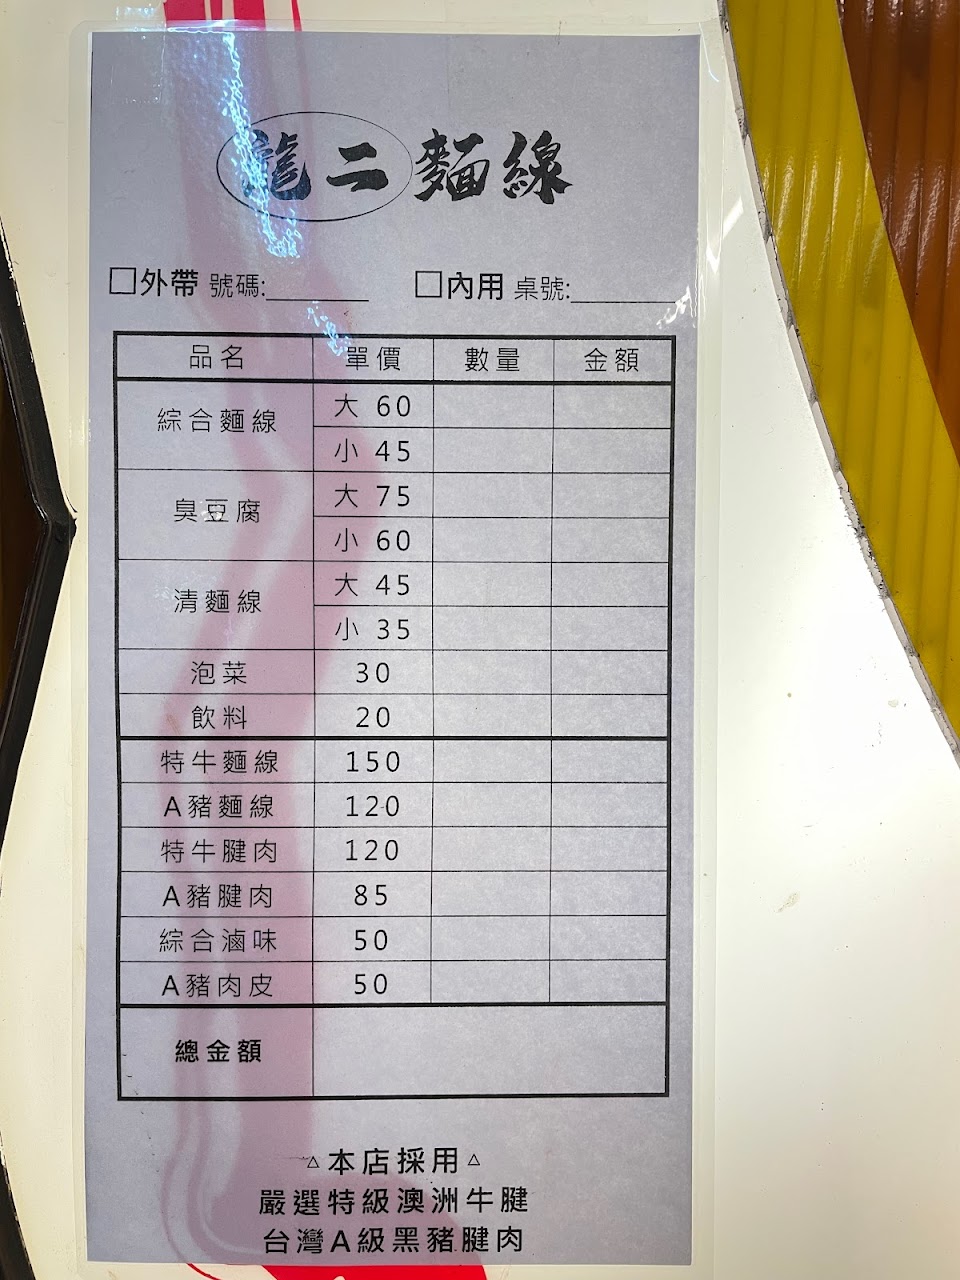 龍二麵線
□外帶 號碼:________ □內用 桌號:________
品名 單價 數量 金額
綜合麵線 大 60
小 45
臭豆腐 大 75
小 60
清麵線 大 45
小 35
泡菜 30
飲料 20
特牛麵線 150
A豬麵線 120
特牛腱肉 120
A豬腱肉 85
綜合滷味 50
A豬肉皮 50
總金額
△本店採用△
嚴選特級澳洲牛腱
台灣A級黑豬腱肉